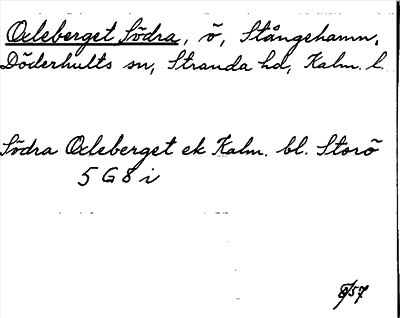 Oxleberget Södra, ö, Stångehamn,
Döderhults sn, Stranda hd, Kalm. l.
Södra Oxleberget ek Kalm. bl. Storö
5 G 8 i
8/57